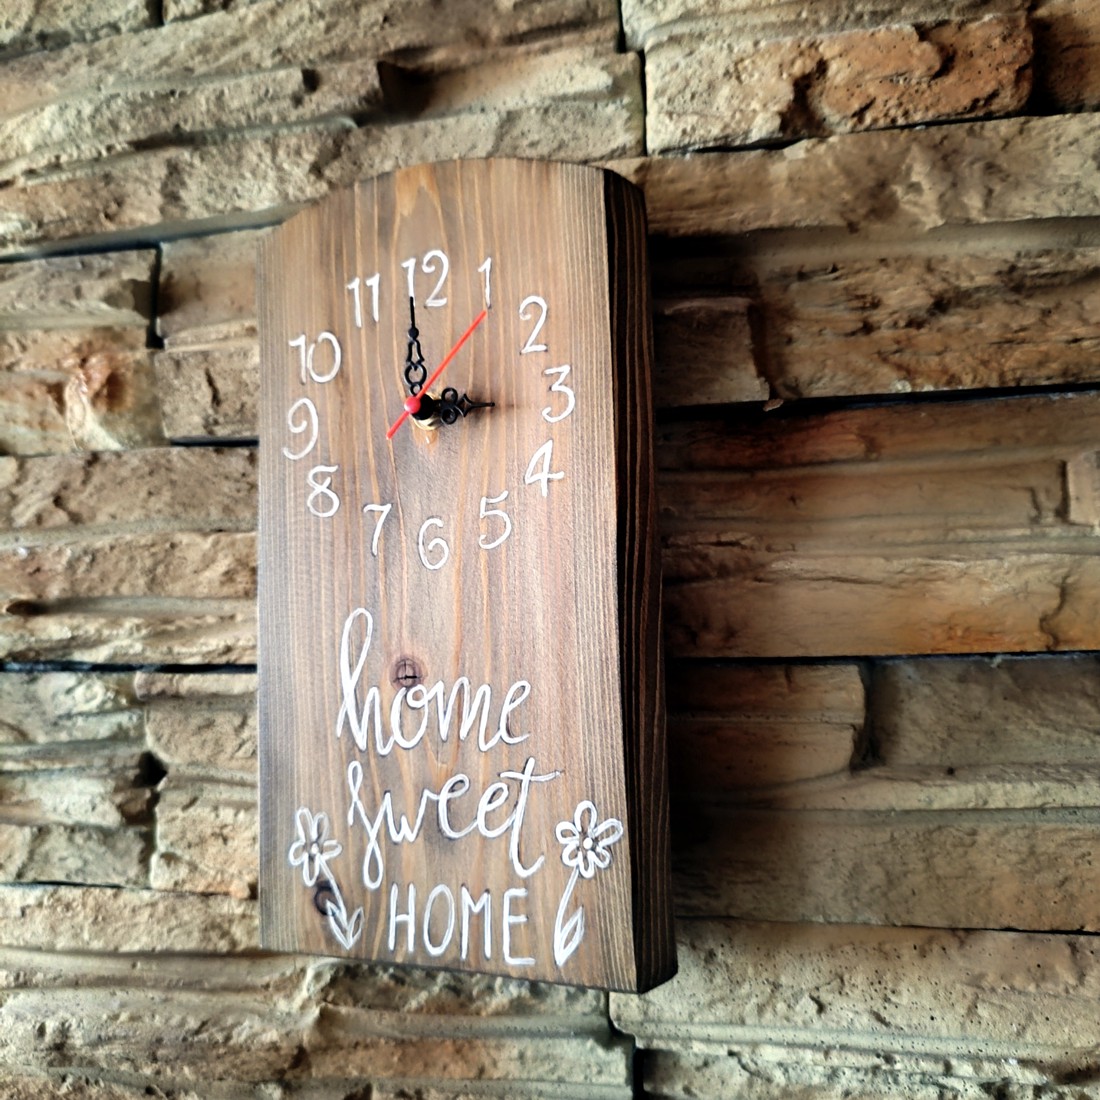 11 12 1
10 2
9 3
8 4
7 6 5
home
sweet
HOME